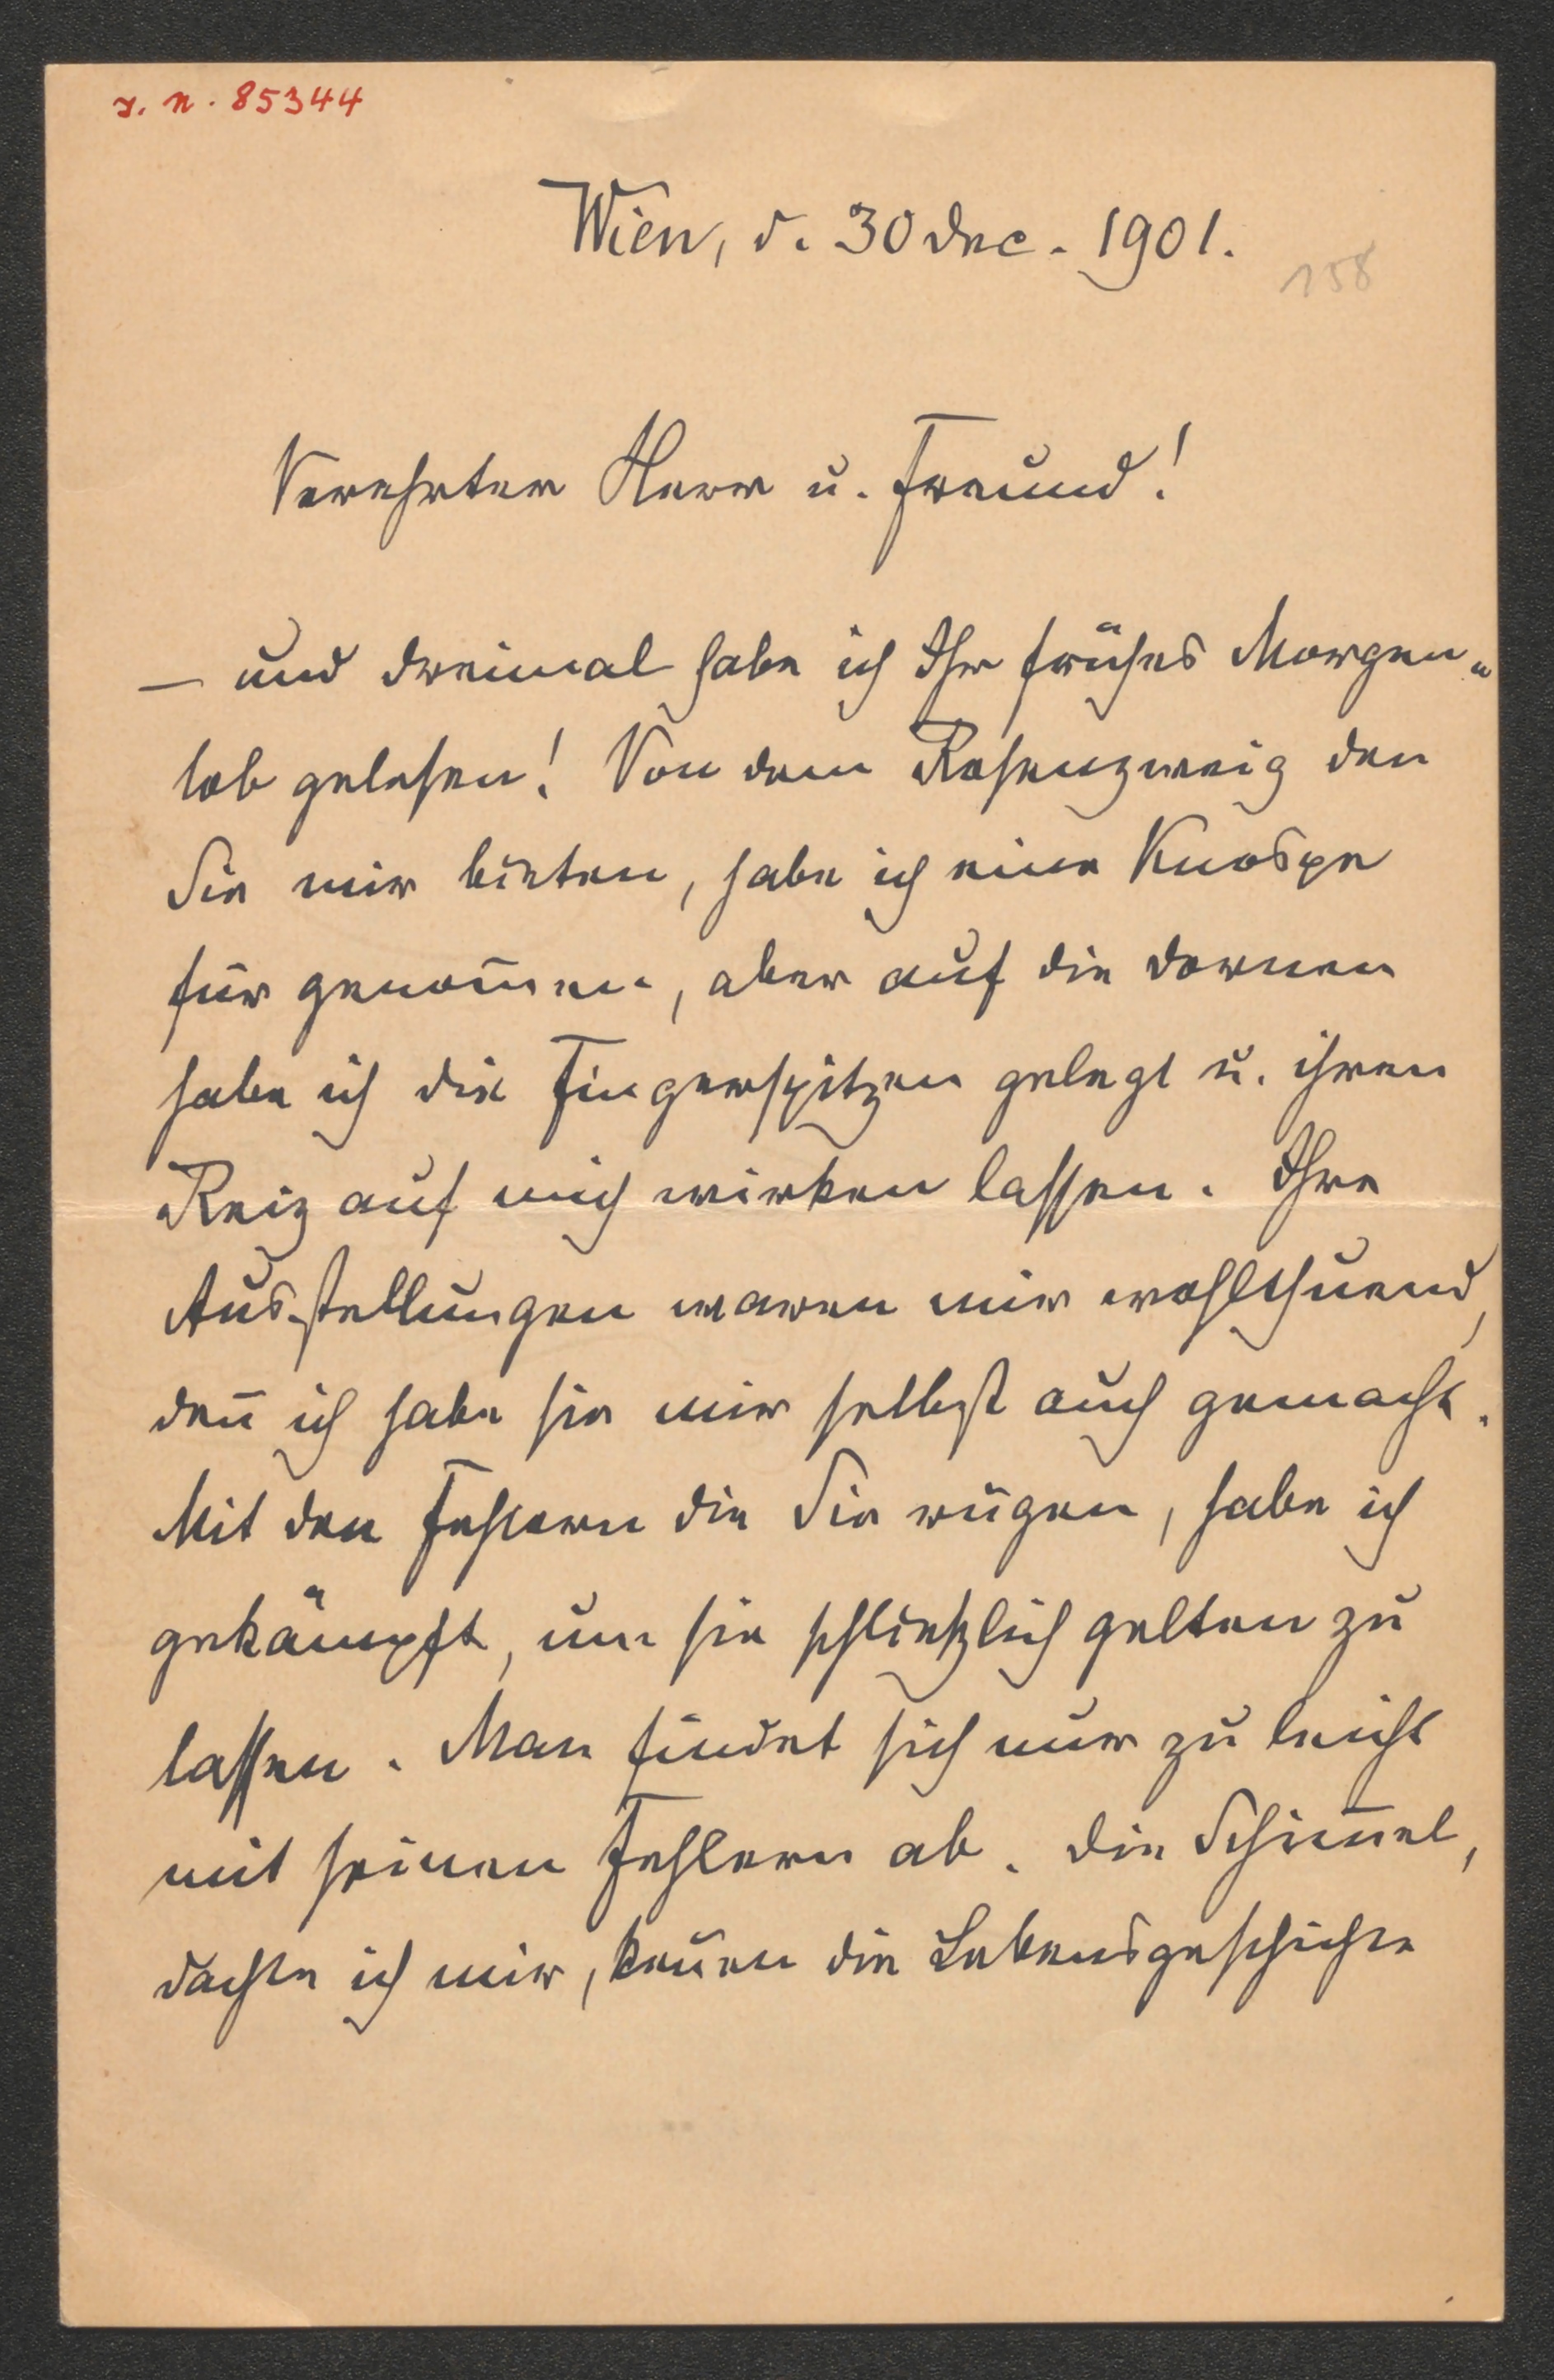 I. N. 85344
Wien, d. 30 Dec. 1901.
158
Verehrter Herr u. Freund!
— und dreimal habe ich Ihr frühes Morgen-
lob gelesen! Von dem Rosenzweig den
Sie mir bieten, habe ich eine Knospe
für genom̅en, aber auf die Dornen
habe ich die Fingerspitzen gelegt u. ihren
Reiz auf mich wirken lassen. Ihre
Ausstellungen waren mir wohlthuend,
den̅ ich habe sie mir selbst auch gemacht.
Mit den Fehlern die Sie rügen, habe ich
gekämpft, um sie schließlich gelten zu
lassen. Man findet sich nur zu leicht
mit seinen Fehlern ab. Die Schim̅el,
dachte ich mir, ken̅en die Lebensgeschichte